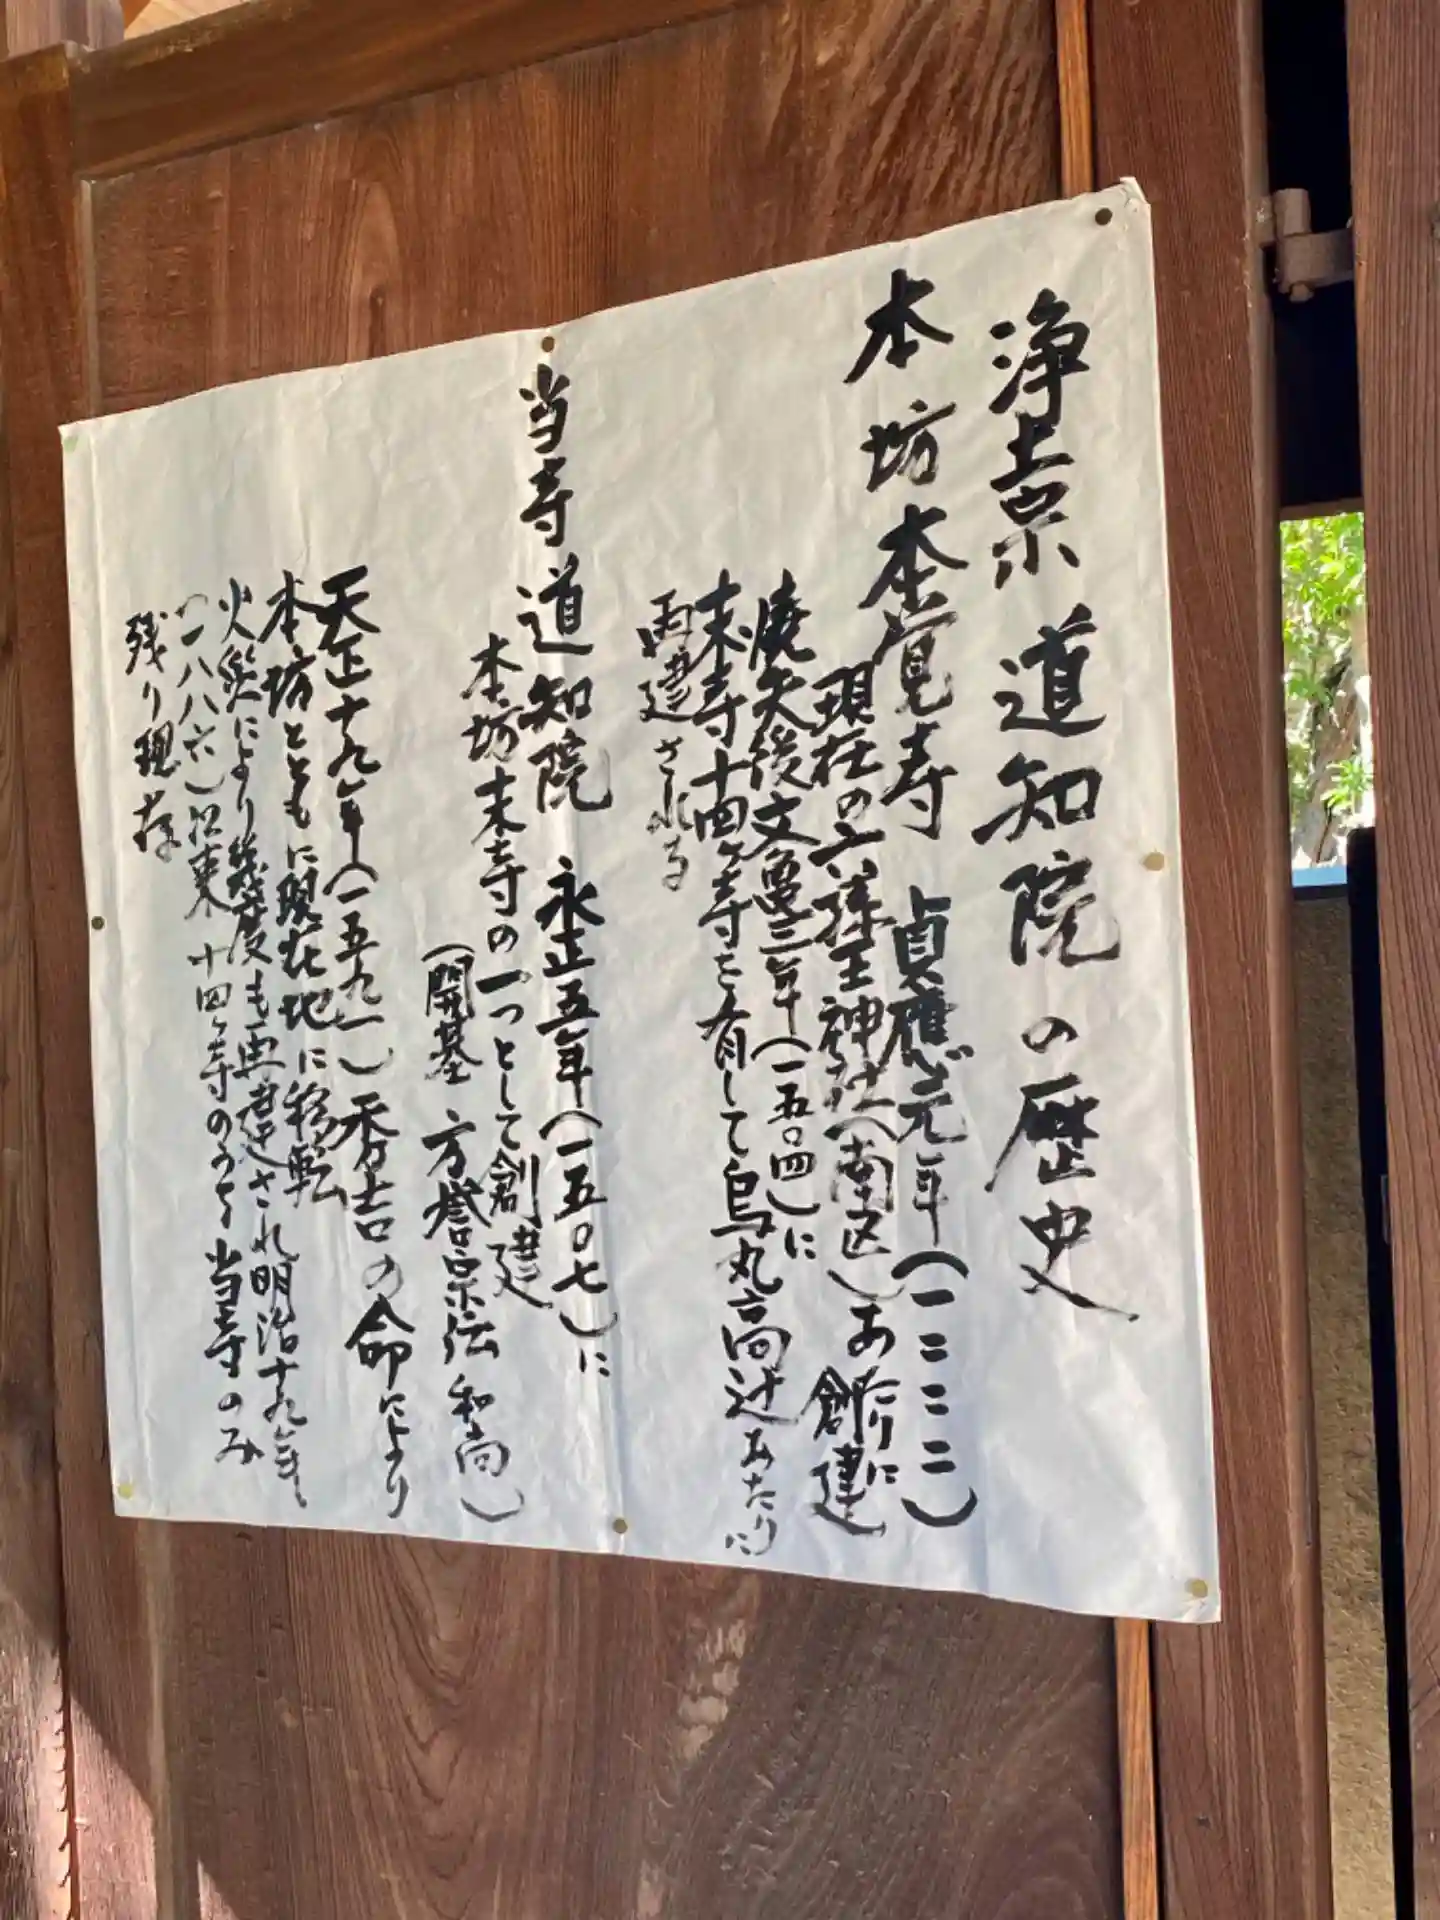 浄土宗 道知院の歴史
本坊 本覚寿 貞應元年(一二二二)
現在の六孫王神社(南区)あたりに創建
廃失後文亀三年(一五〇四)に
末寺十四ヶ寺を有して烏丸高辻あたりに
再建される
当寺 道知院 永正五年(一五〇七)に
本坊末寺の一つとして創建
(開基 方誉宗伝和尚)
天正十九年(一五九一)秀吉の命により
本坊とともに現在地に移転
火災により幾度も再建され明治十九年
(一八八六)江東十四ヶ寺のうち当寺のみ
残り現存